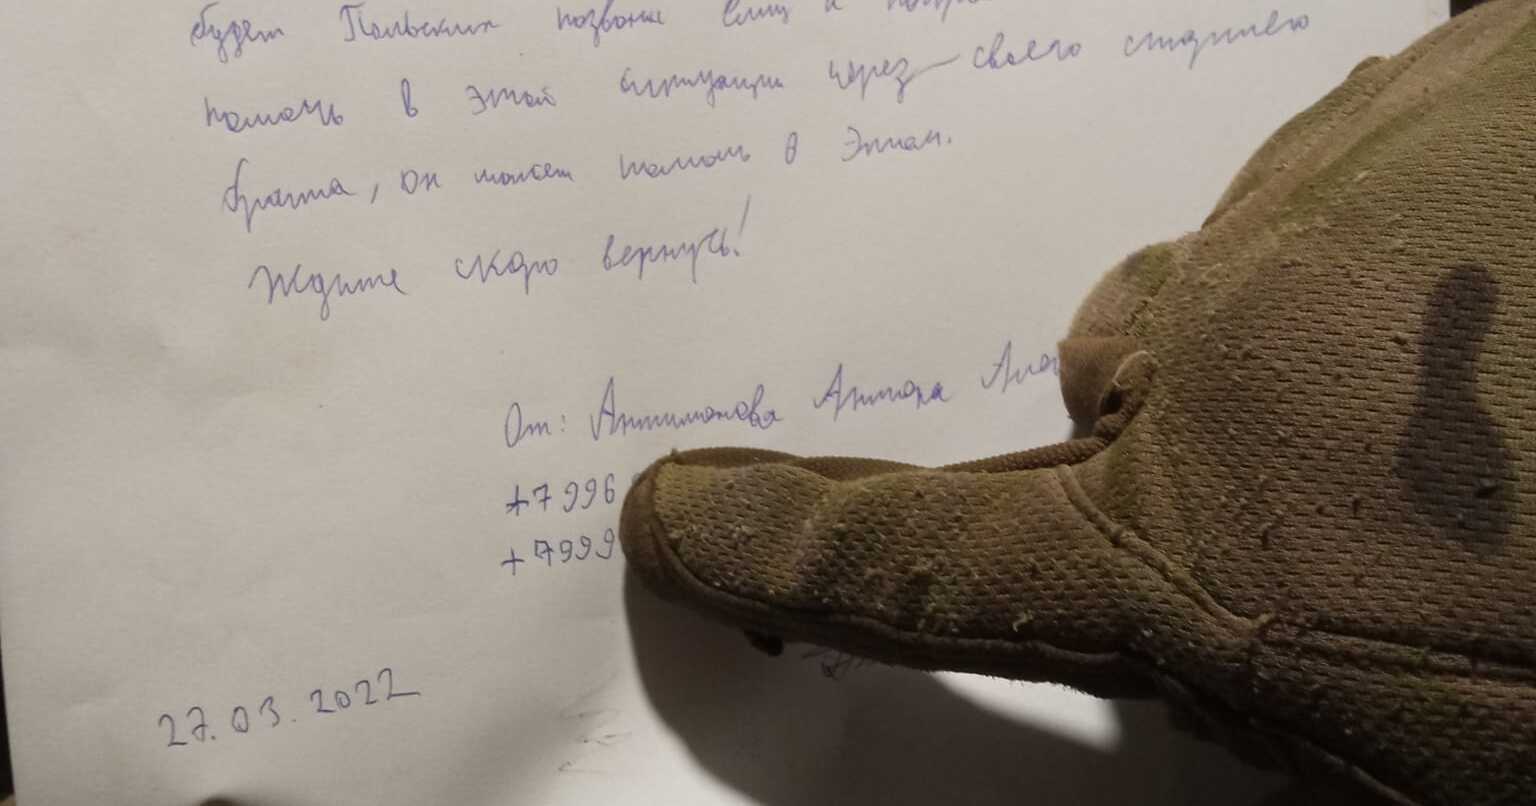 будет Польских позвони ему и
помочь в этой ситуации через своего старшего
брата, он может помочь в этом.
Ждите скоро вернусь!
От: Антимонова Антона
+7996
+7999
27.03.2022